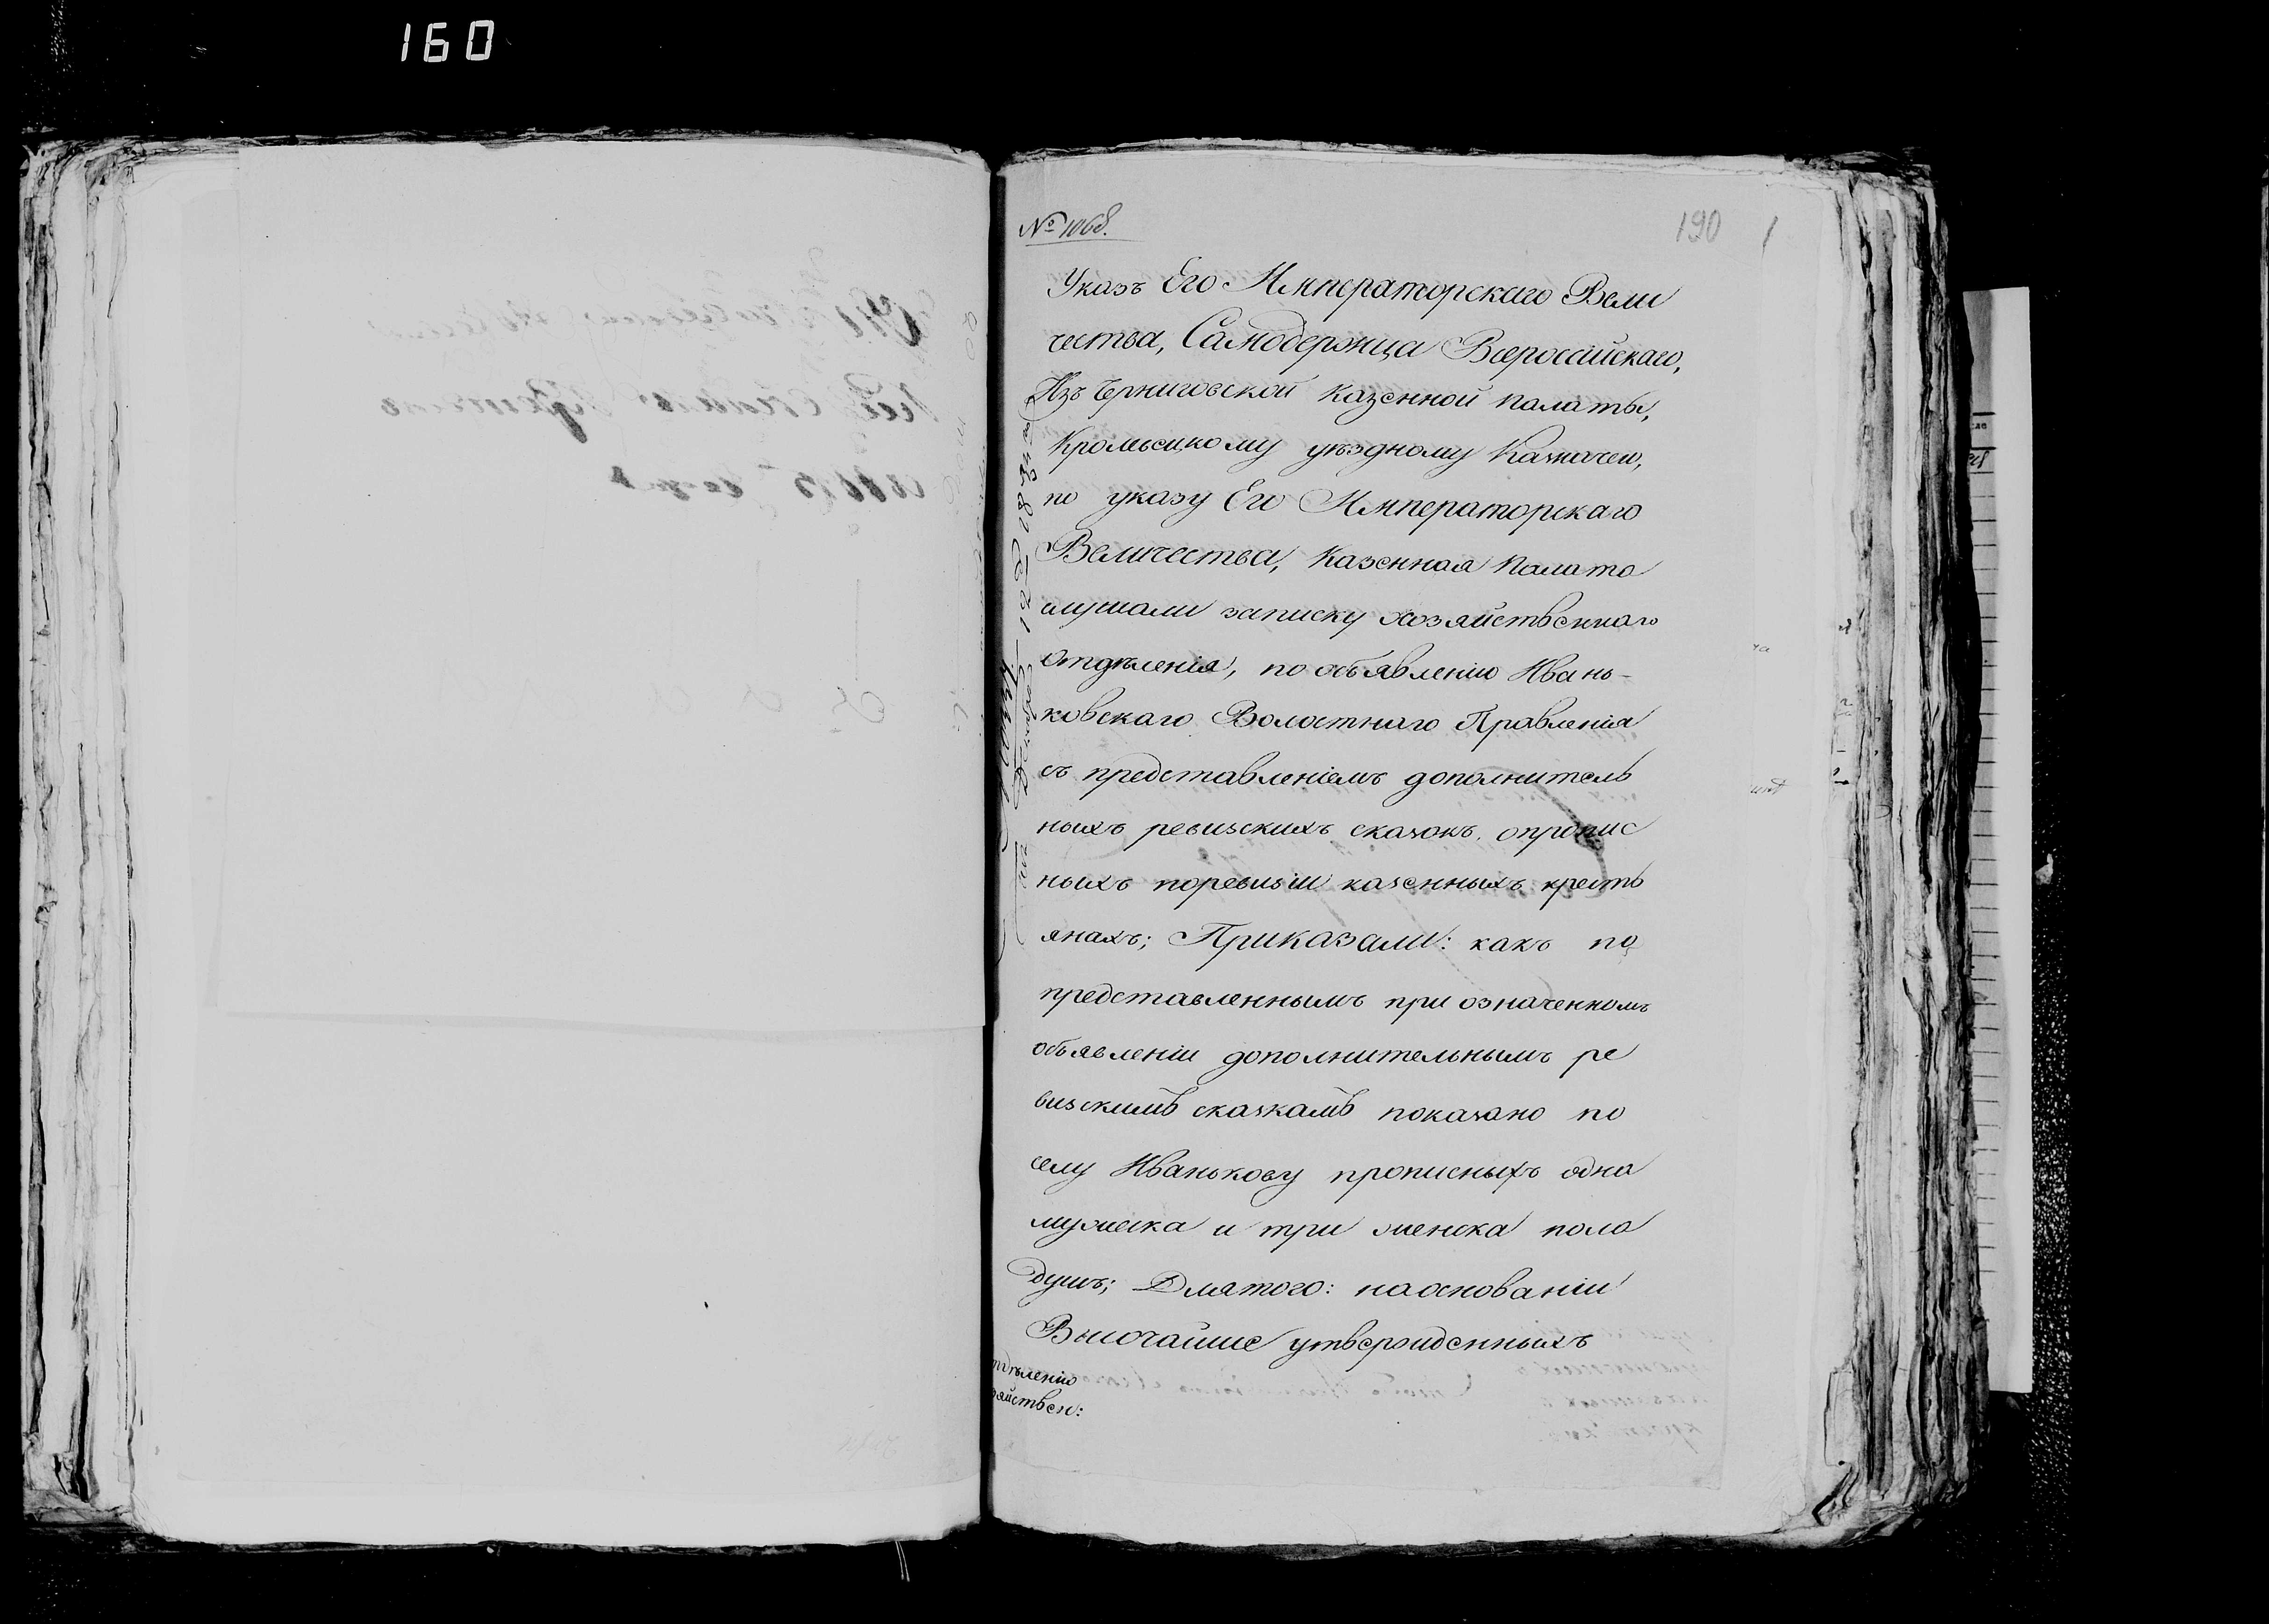 160
№ 1068.
190
Указъ Его Императорскаго Вели
чества, Самодержца Всероссійскаго,
Изъ Черниговской Казенной палаты,
Кролевецкому уѣздному Казначею,
по указу Его Императорскаго
Величества, Казенная Палата
слушали записку хозяйственнаго
отдѣленія, по объявленію Ивань-
ковскаго Волостнаго Правленія
съ представленіемъ дополнитель
ныхъ ревизскихъ сказокъ, опропис
ныхъ поревизіи казенныхъ кресть
янахъ; Приказали: какъ по
представленнымъ при означенномъ
объявленіи дополнительнымъ ре
визскимъ сказкамъ показано по
селу Иванькову прописныхъ одна
мужеска и три женска пола
душъ; Длятого: наоснованіи
Высочайше утвержденныхъ
тдѣленіе
зяйствен: